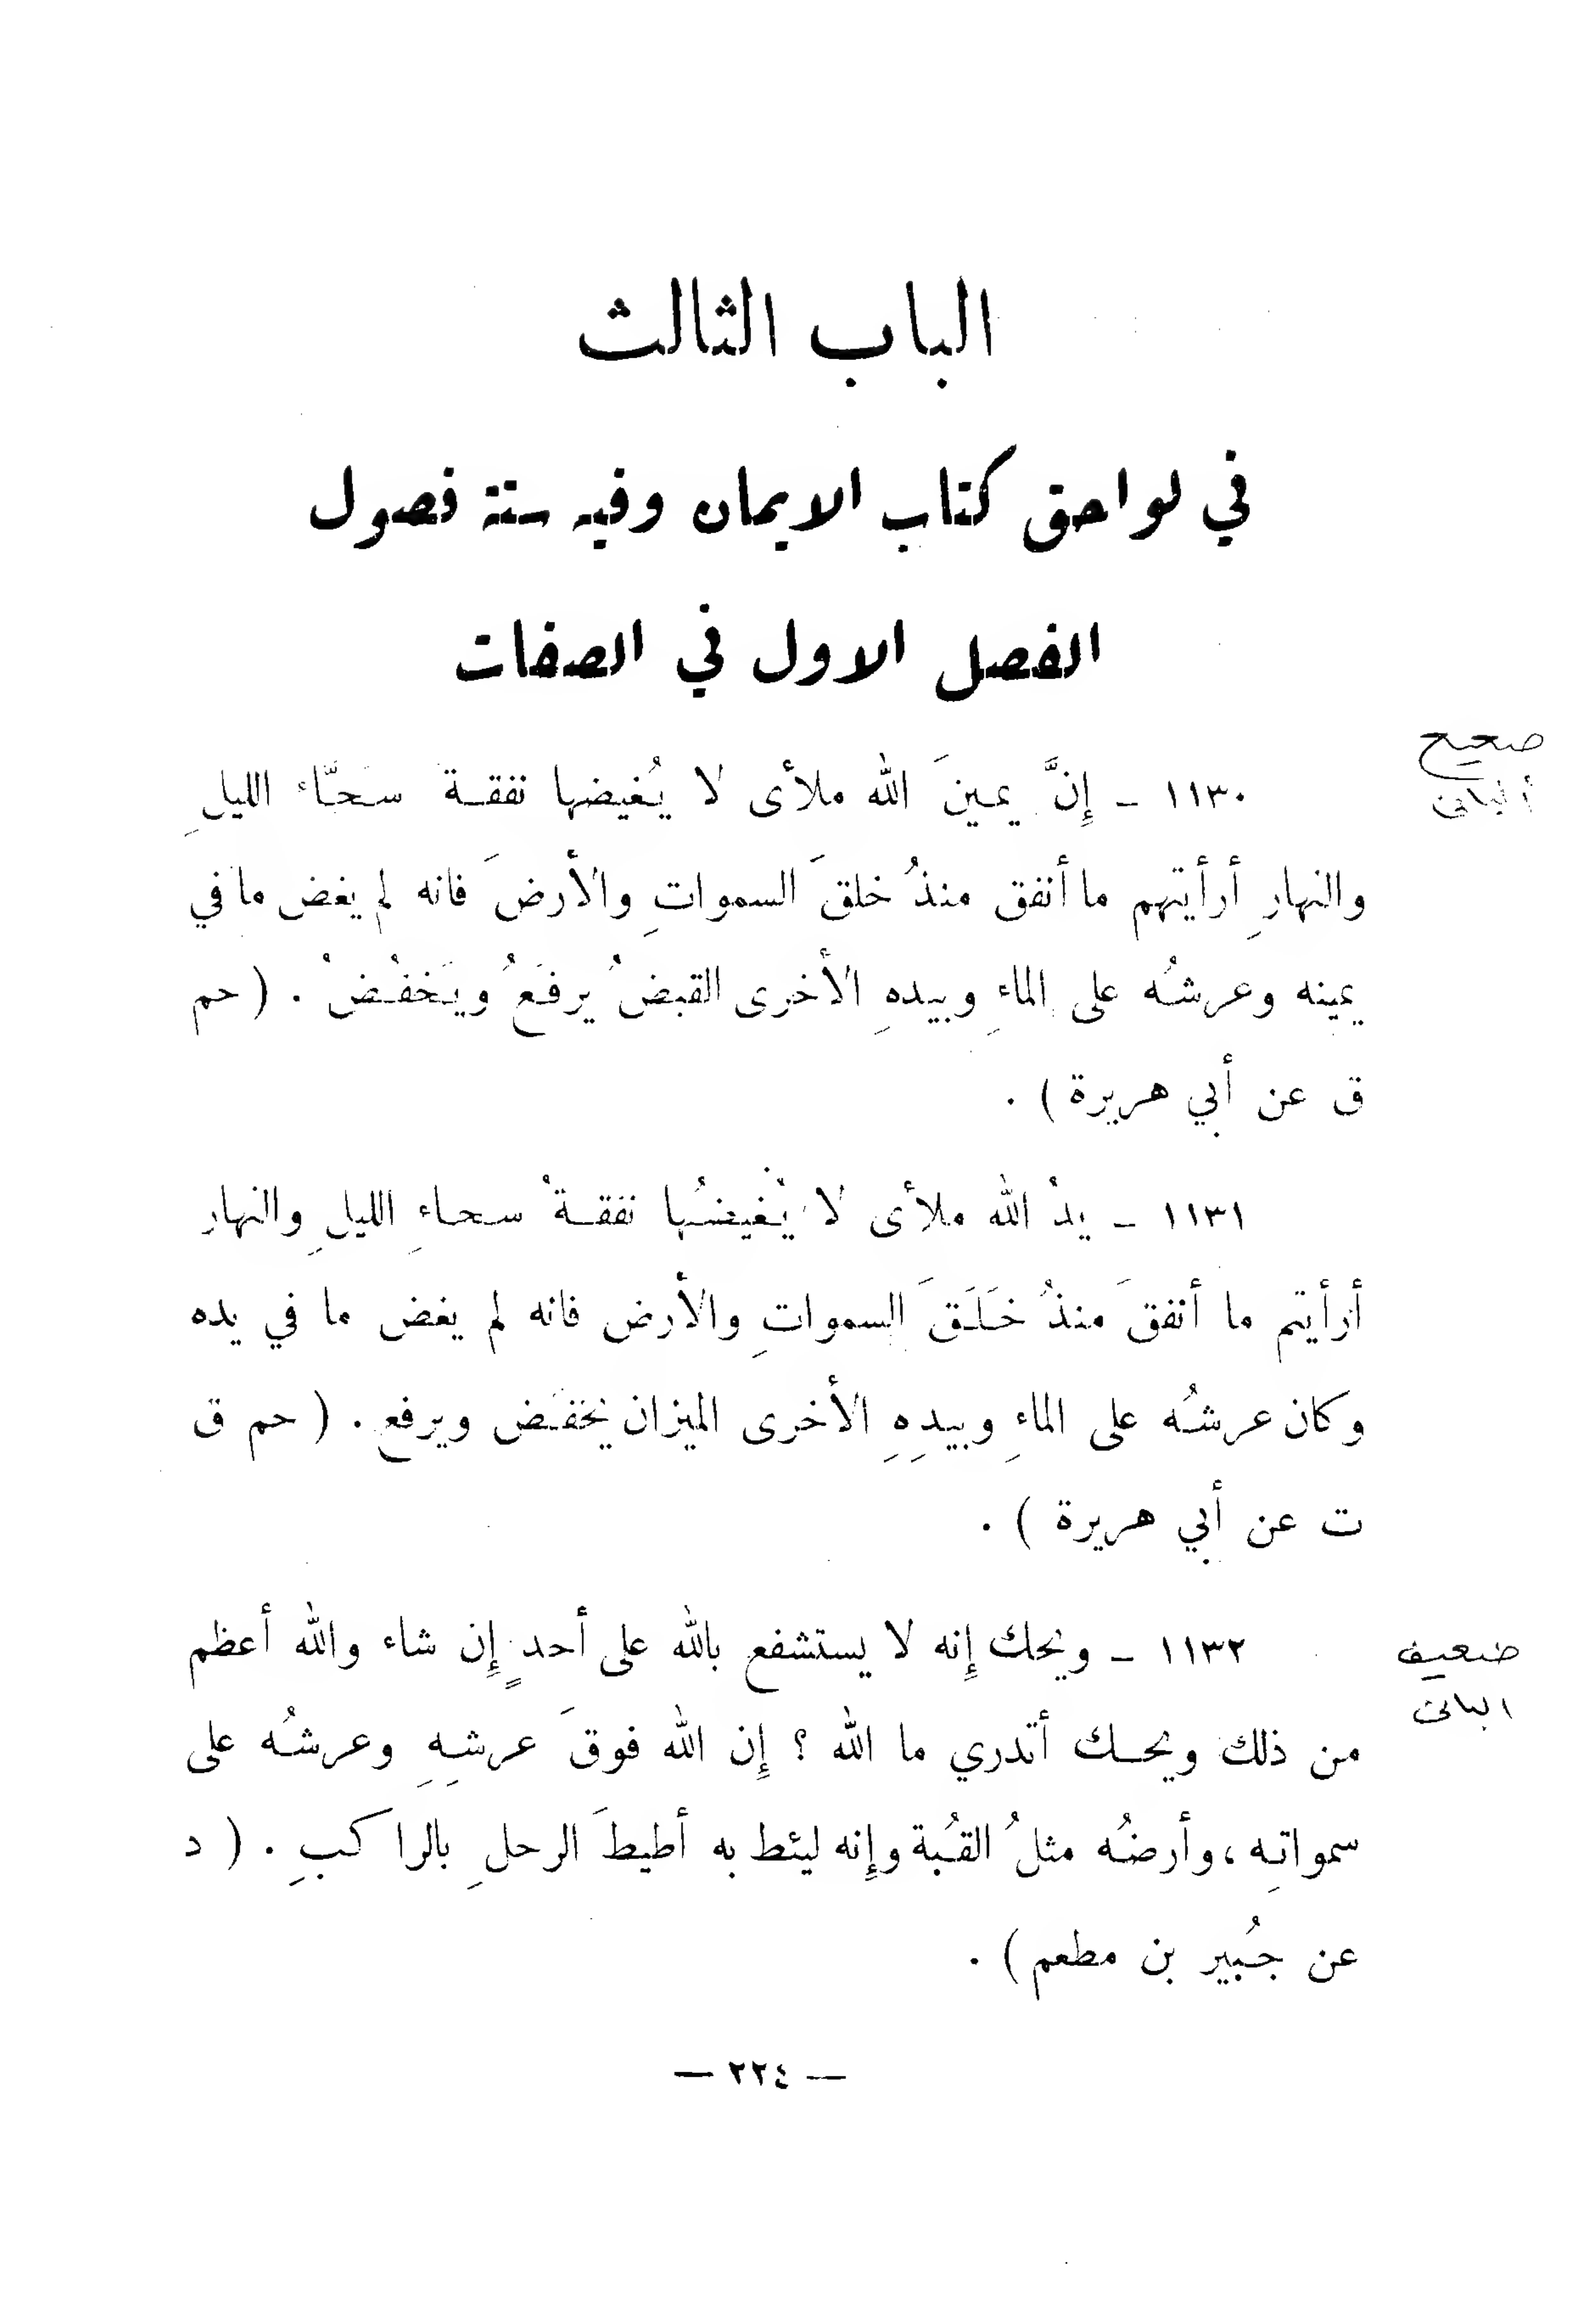 الباب الثالث
في لواحق كتاب الايمان وفيه ستة فصول
الفصل الاول في الصفات
صحيح
ألباني
١١٣٠ ـ إِنَّ يمينَ الله ملأى لا يُغيضها نفقة سَحَّاء الليلِ
والنهارِ أرأيتهم ما أنفق منذُ خلقَ السمواتِ والأرضَ فانه لم يغض ما في
يمينه وعرشُه على الماءِ وبيدهِ الأخرى القبضُ يرفَعُ ويَخفُضُ . ( حم
ق عن أبي هريرة ) .
١١٣١ ـ يدُ الله ملأى لا يُغيضُها نفقةُ سحاءِ الليلِ والنهارِ
أرأيتم ما أنفقَ منذُ خَلَقَ السمواتِ والأرض فانه لم يغض ما في يده
وكان عرشُه على الماءِ وبيدِهِ الأخرى الميزان يخفض ويرفع . ( حم ق
ت عن أبي هريرة ) .
ضعيف
البانى
١١٣٢ ـ ويحك إِنه لا يستشفع بالله على أحدٍ إِن شاء والله أعظم
من ذلك ويحك أتدري ما الله ؟ إِن الله فوقَ عرشِهِ وعرشُه على
سمواتِه ، وأرضُه مثلُ القُبة وإِنه ليئط به أطيطَ الرحلِ بالراكبِ . ( د
عن جُبير بن مطعم ) .
— ٢٢٤ —